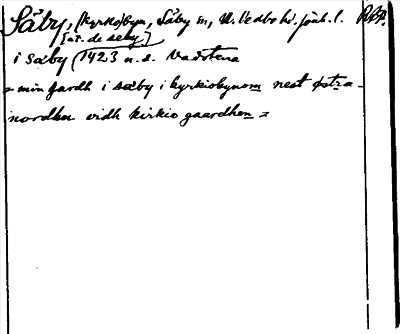 Säby, (kyrko)byn, Säby sn, N. Vedbo hd. Jönk. l. RAp.
[at. de seby]
i sæby (1423 u. s. Vadstena
= min gardh i sæby i kyrkiobynom nest østra-
nordhen vidh kirkio gaardhen =